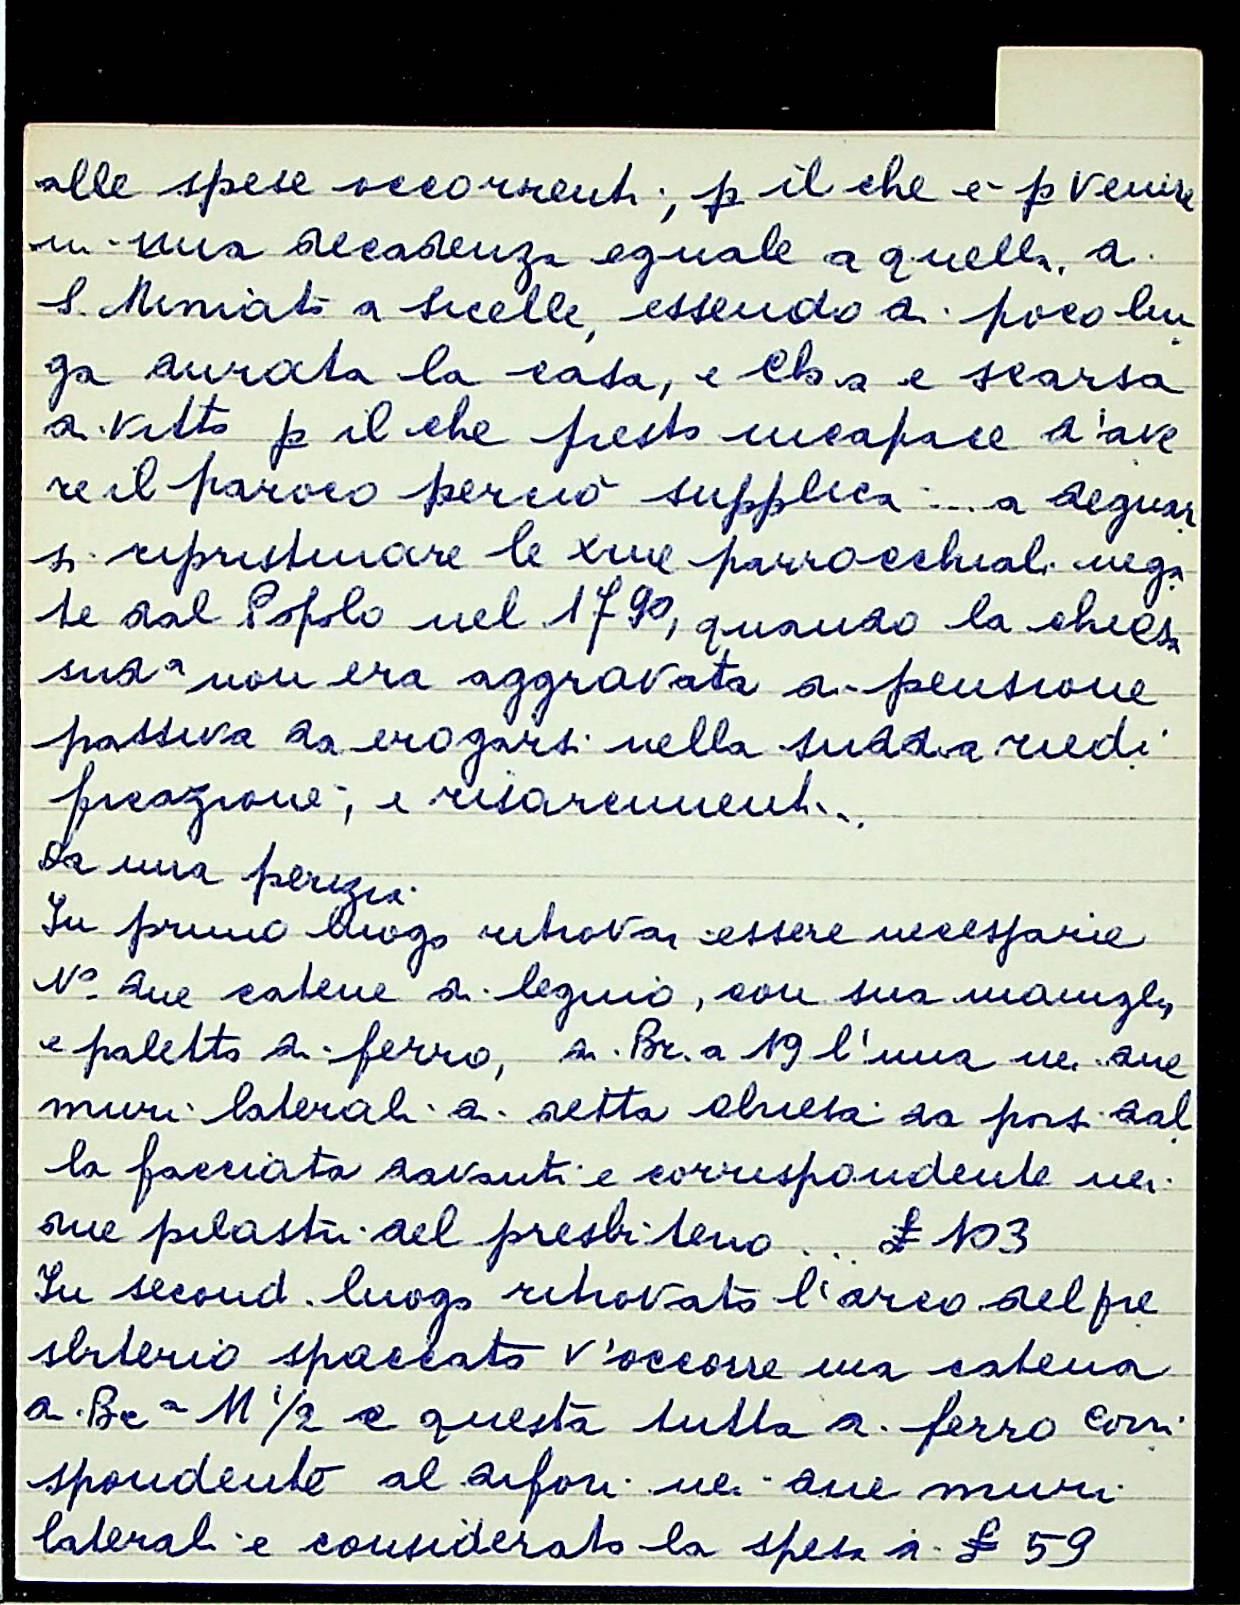 alle spese occorrenti, p il che è p venire
in una decadenza eguale a quella di
S. Miniato a Sicelle, essendo di poco lun
ga durata la casa, e Ch.a e scarsa
di vitto p il che presto incapace d'ave
re il paroco perciò supplica .... a degnar
si ripristinare le xme parrocchiali nega
te dal Popolo nel 1790, quando la chiesa
sudª non era aggravata di pensione
passiva da erogarsi nella sudd.a riedi
ficazione, e risarcimenti..
Da una perizia
In primo luogo ritrovai essere necessarie
N° due catene di legnio, con sua maniglia
e paletto di ferro, di Br.a 19 l'una nei due
muri laterali di detta chiesa da porsi dal
la facciata davanti e corrispondente nei
due pilastri del presbiterio ... £ 103
In second. luogo ritrovato l'arco del pre
sbiterio spaccato v'occorre una catena
di Bcª 11 1/2 e questa tutta di ferro corri
spondente al difori nei due muri
laterali e considerato la spesa di £ 59